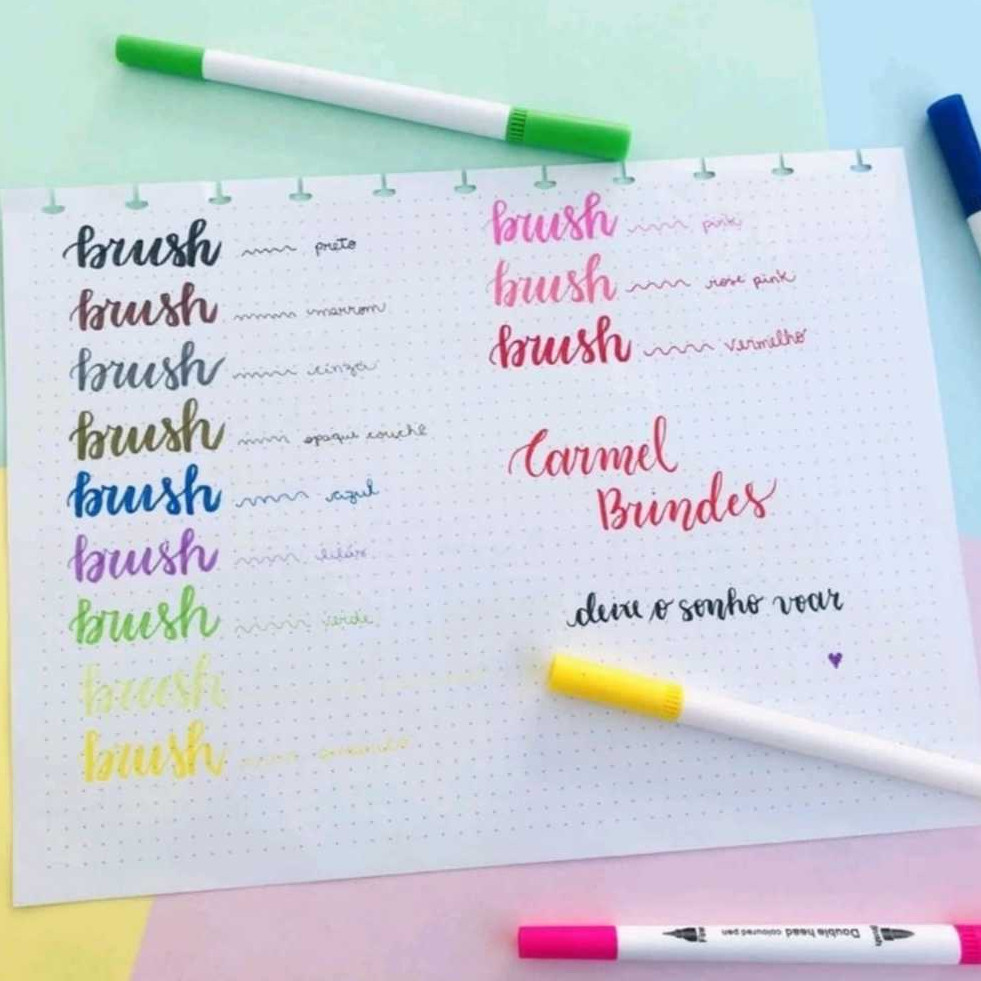 brush preto
brush marrom
brush cinza
brush opaqui couchê
brush azul
brush lilás
brush verde
brush
brush amarelo
brush pink
brush rose pink
brush vermelho
Carmel
Brindes
deixe o sonho voar
Double head coloured pen
brush